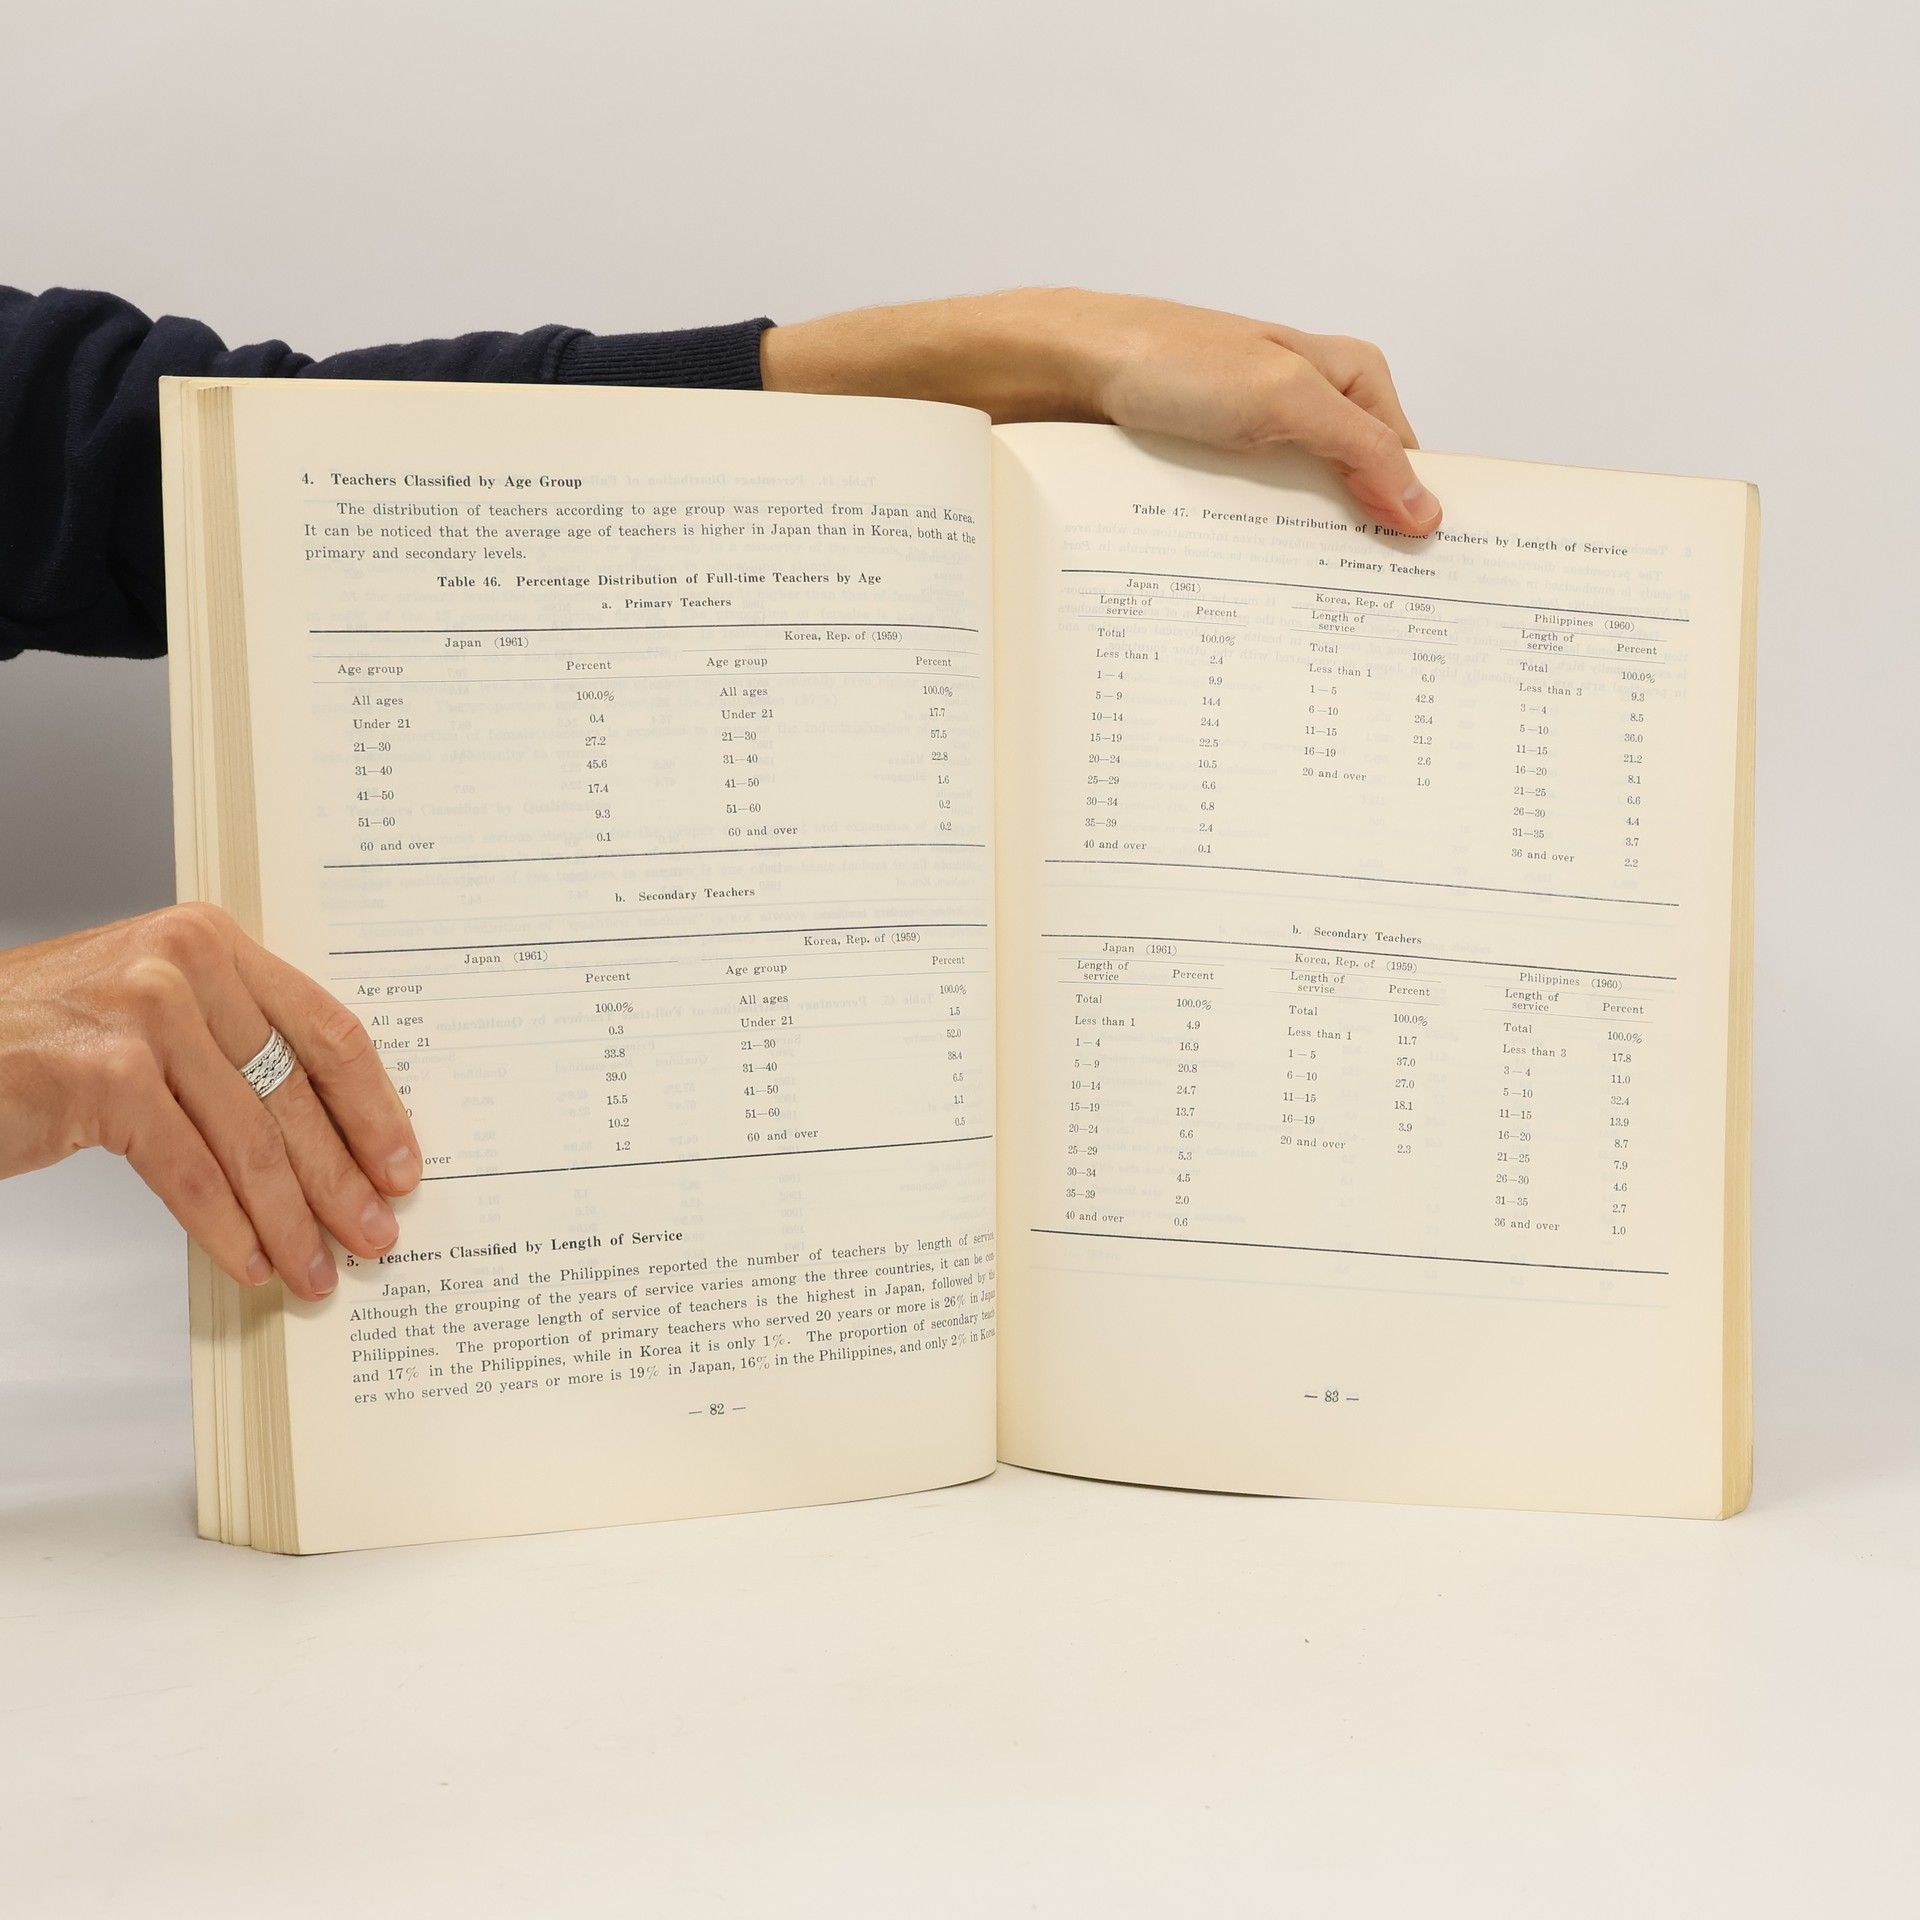 4. Teachers Classified by Age Group
The distribution of teachers according to age group was reported from Japan and Korea.
It can be noticed that the average age of teachers is higher in Japan than in Korea, both at the
primary and secondary levels.
Table 46. Percentage Distribution of Full-time Teachers by Age
a. Primary Teachers
Japan (1961) Korea, Rep. of (1959)
Age group Percent Age group Percent
All ages 100.0% All ages 100.0%
Under 21 0.4 Under 21 17.7
21—30 27.2 21—30 57.5
31—40 45.6 31—40 22.8
41—50 17.4 41—50 1.6
51—60 9.3 51—60 0.2
60 and over 0.1 60 and over 0.2
b. Secondary Teachers
Japan (1961) Korea, Rep. of (1959)
Age group Percent Age group Percent
All ages 100.0% All ages 100.0%
Under 21 0.3 Under 21 1.5
—30 33.8 21—30 52.0
40 39.0 31—40 38.4
0 15.5 41—50 6.5
10.2 51—60 1.1
over 1.2 60 and over 0.5
5. Teachers Classified by Length of Service
Japan, Korea and the Philippines reported the number of teachers by length of service
Although the grouping of the years of service varies among the three countries, it can be con
cluded that the average length of service of teachers is the highest in Japan, followed by the
Philippines. The proportion of primary teachers who served 20 years or more is 26% in Japan
and 17% in the Philippines, while in Korea it is only 1%. The proportion of secondary teach
ers who served 20 years or more is 19% in Japan, 16% in the Philippines, and only 2% in Korea
— 82 —
Table 47. Percentage Distribution of Full-time Teachers by Length of Service
a. Primary Teachers
Japan (1961) Korea, Rep. of (1959) Philippines (1960)
Length of service Percent Length of service Percent Length of service Percent
Total 100.0% Total 100.0% Total 100.0%
Less than 1 2.4 Less than 1 6.0 Less than 3 9.3
1—4 9.9 1—5 42.8 3—4 8.5
5—9 14.4 6—10 26.4 5—10 36.0
10—14 24.4 11—15 21.2 11—15 21.2
15—19 22.5 16—19 2.6 16—20 8.1
20—24 10.5 20 and over 1.0 21—25 6.6
25—29 6.6 26—30 4.4
30—34 6.8 31—35 3.7
35—39 2.4 36 and over 2.2
40 and over 0.1
b. Secondary Teachers
Japan (1961) Korea, Rep. of (1959) Philippines (1960)
Length of service Percent Length of servise Percent Length of service Percent
Total 100.0% Total 100.0% Total 100.0%
Less than 1 4.9 Less than 1 11.7 Less than 3 17.8
1—4 16.9 1—5 37.0 3—4 11.0
5—9 20.8 6—10 27.0 5—10 32.4
10—14 24.7 11—15 18.1 11—15 13.9
15—19 13.7 16—19 3.9 16—20 8.7
20—24 6.6 20 and over 2.3 21—25 7.9
25—29 5.3 26—30 4.6
30—34 4.5 31—35 2.7
35—39 2.0 36 and over 1.0
40 and over 0.6
— 83 —